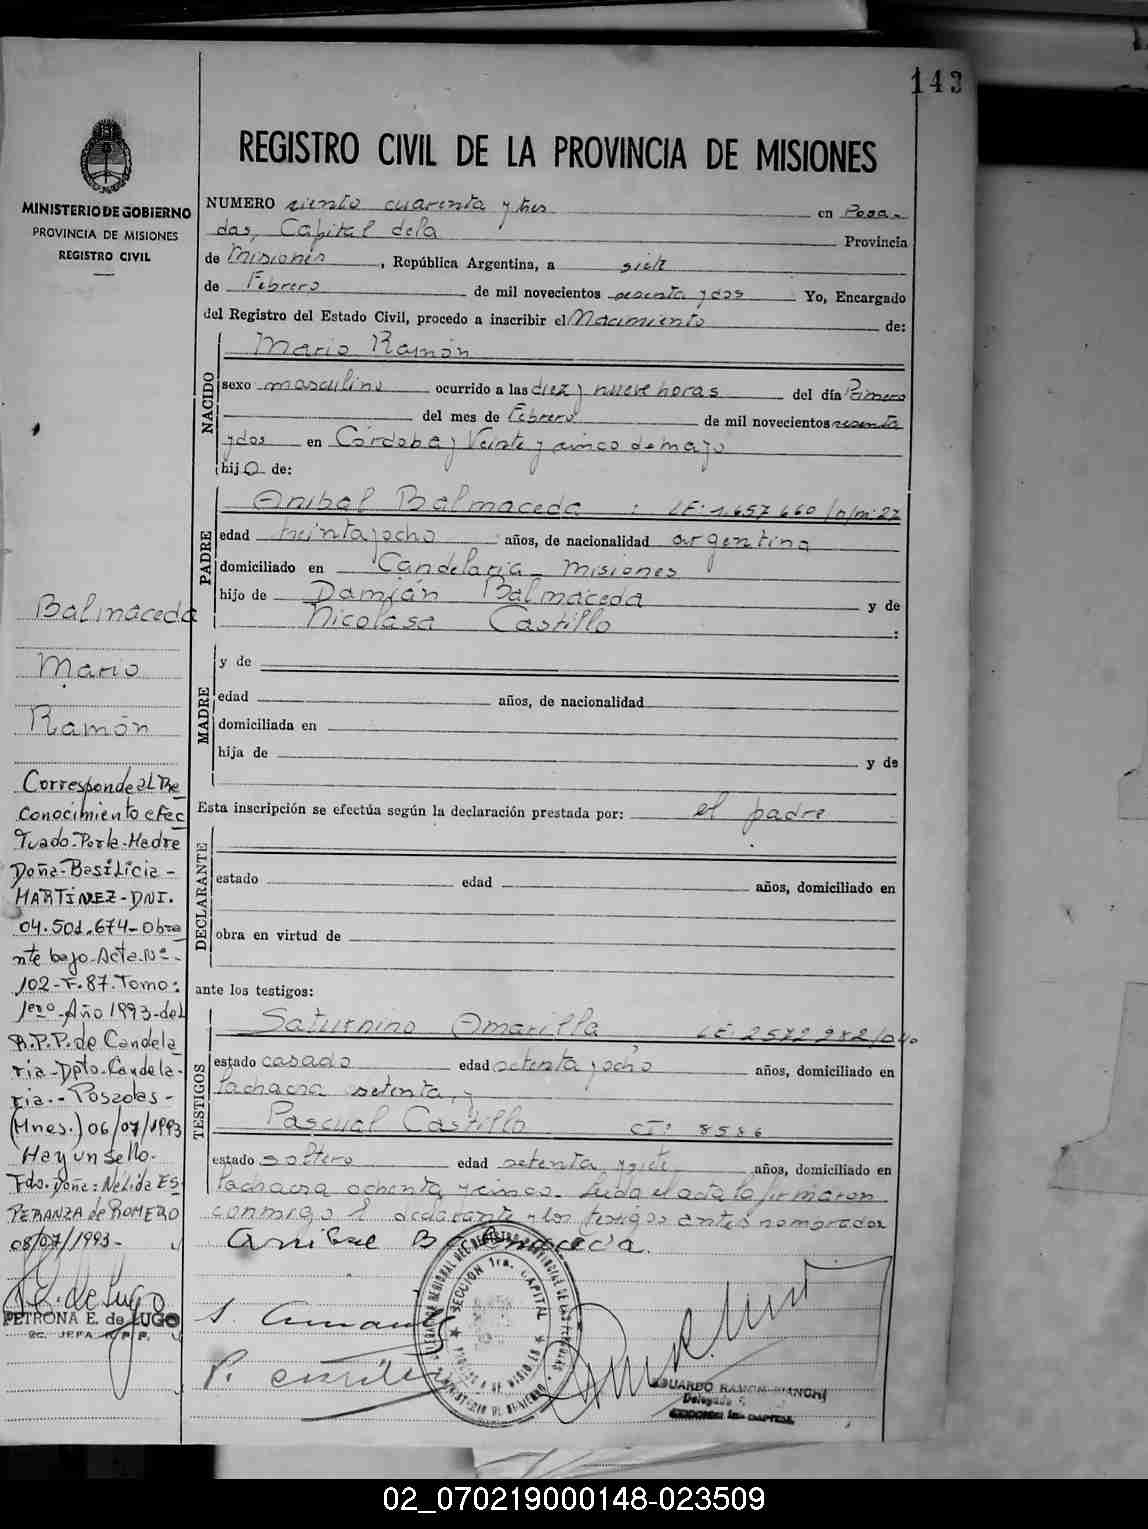 143
REGISTRO CIVIL DE LA PROVINCIA DE MISIONES
MINISTERIO DE GOBIERNO
PROVINCIA DE MISIONES
REGISTRO CIVIL
NUMERO ciento cuarenta y tres en Posa-
das, Capital de la Provincia
de Misiones, República Argentina, a siete
de Febrero de mil novecientos sesenta y dos Yo, Encargado
del Registro del Estado Civil, procedo a inscribir el Nacimiento de:
NACIDO
Mario Ramón
sexo masculino ocurrido a las diez y nueve horas del día Primero
del mes de Febrero de mil novecientos sesenta
y dos en Córdoba y Veinte y cinco de mayo
hijo de:
PADRE
Anibal Balmaceda : LE: 1.657.660/D/M:27
edad treinta y ocho años, de nacionalidad argentina
domiciliado en Candelaria - Misiones
hijo de Damián Balmaceda y de
Nicolasa Castillo :
MADRE
y de
edad años, de nacionalidad
domiciliada en
hija de y de
Esta inscripción se efectúa según la declaración prestada por: el padre
DECLARANTE
estado edad años, domiciliado en
obra en virtud de
ante los testigos:
TESTIGOS
Saturnino Amarilla LE: 2572982
estado casado edad setenta y ocho años, domiciliado en
la chacra setenta, y
Pascual Castillo CI: 8586
estado soltero edad setenta y siete años, domiciliado en
la chacra ochenta y cinco. Leida el acta la firmaron
conmigo el declarante y los testigos antes nombrados
Anibal Balmaceda.
S. Amarilla
P. Castillo
SECCION 1ra. CAPITAL
EDUARDO RAMON BIANCHI
Delegado
SECCION 1a. CAPITAL
Balmaceda
Mario
Ramón
Corresponde al Re
conocimiento efec
tuado-Por la-Madre
Doña-Basilicia-
MARTINEZ-DNI.
04.501.674-Obra
nte bajo-Acta-Nº-
102-F.87.Tomo:
1ero-Año 1993-del
R.P.P. de Candela
ria-Dpto.Candela-
ria.-Posadas-
(Mnes.) 06/07/1993
Hay un sello.
Fdo. Doña: Nélida ES
PERANZA de ROMERO
08/07/1993-
PETRONA E. de LUGO
SC. JEFA R.P.P.
02_070219000148-023509